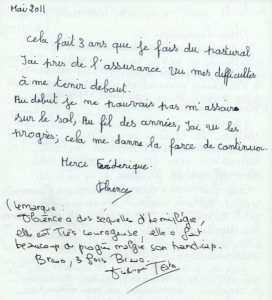 Mai 2011
cela fait 3 ans que je fais du pastural
J'ai pris de l'assurance vu mes difficultés
à me tenir debout.
Au debut je ne pouvais pas m'assoir
sur le sol, Au fil des années, J'ai vu les
progrès; cela me donne la force de continuer.
Merci Frédérique.
Florence
(Remarque:
Florence a des sequelles d'hemiplégie,
elle est très courageuse, elle a fait
beaucoup de progrès malgré son handicap.
Bravo, 3 fois Bravo.